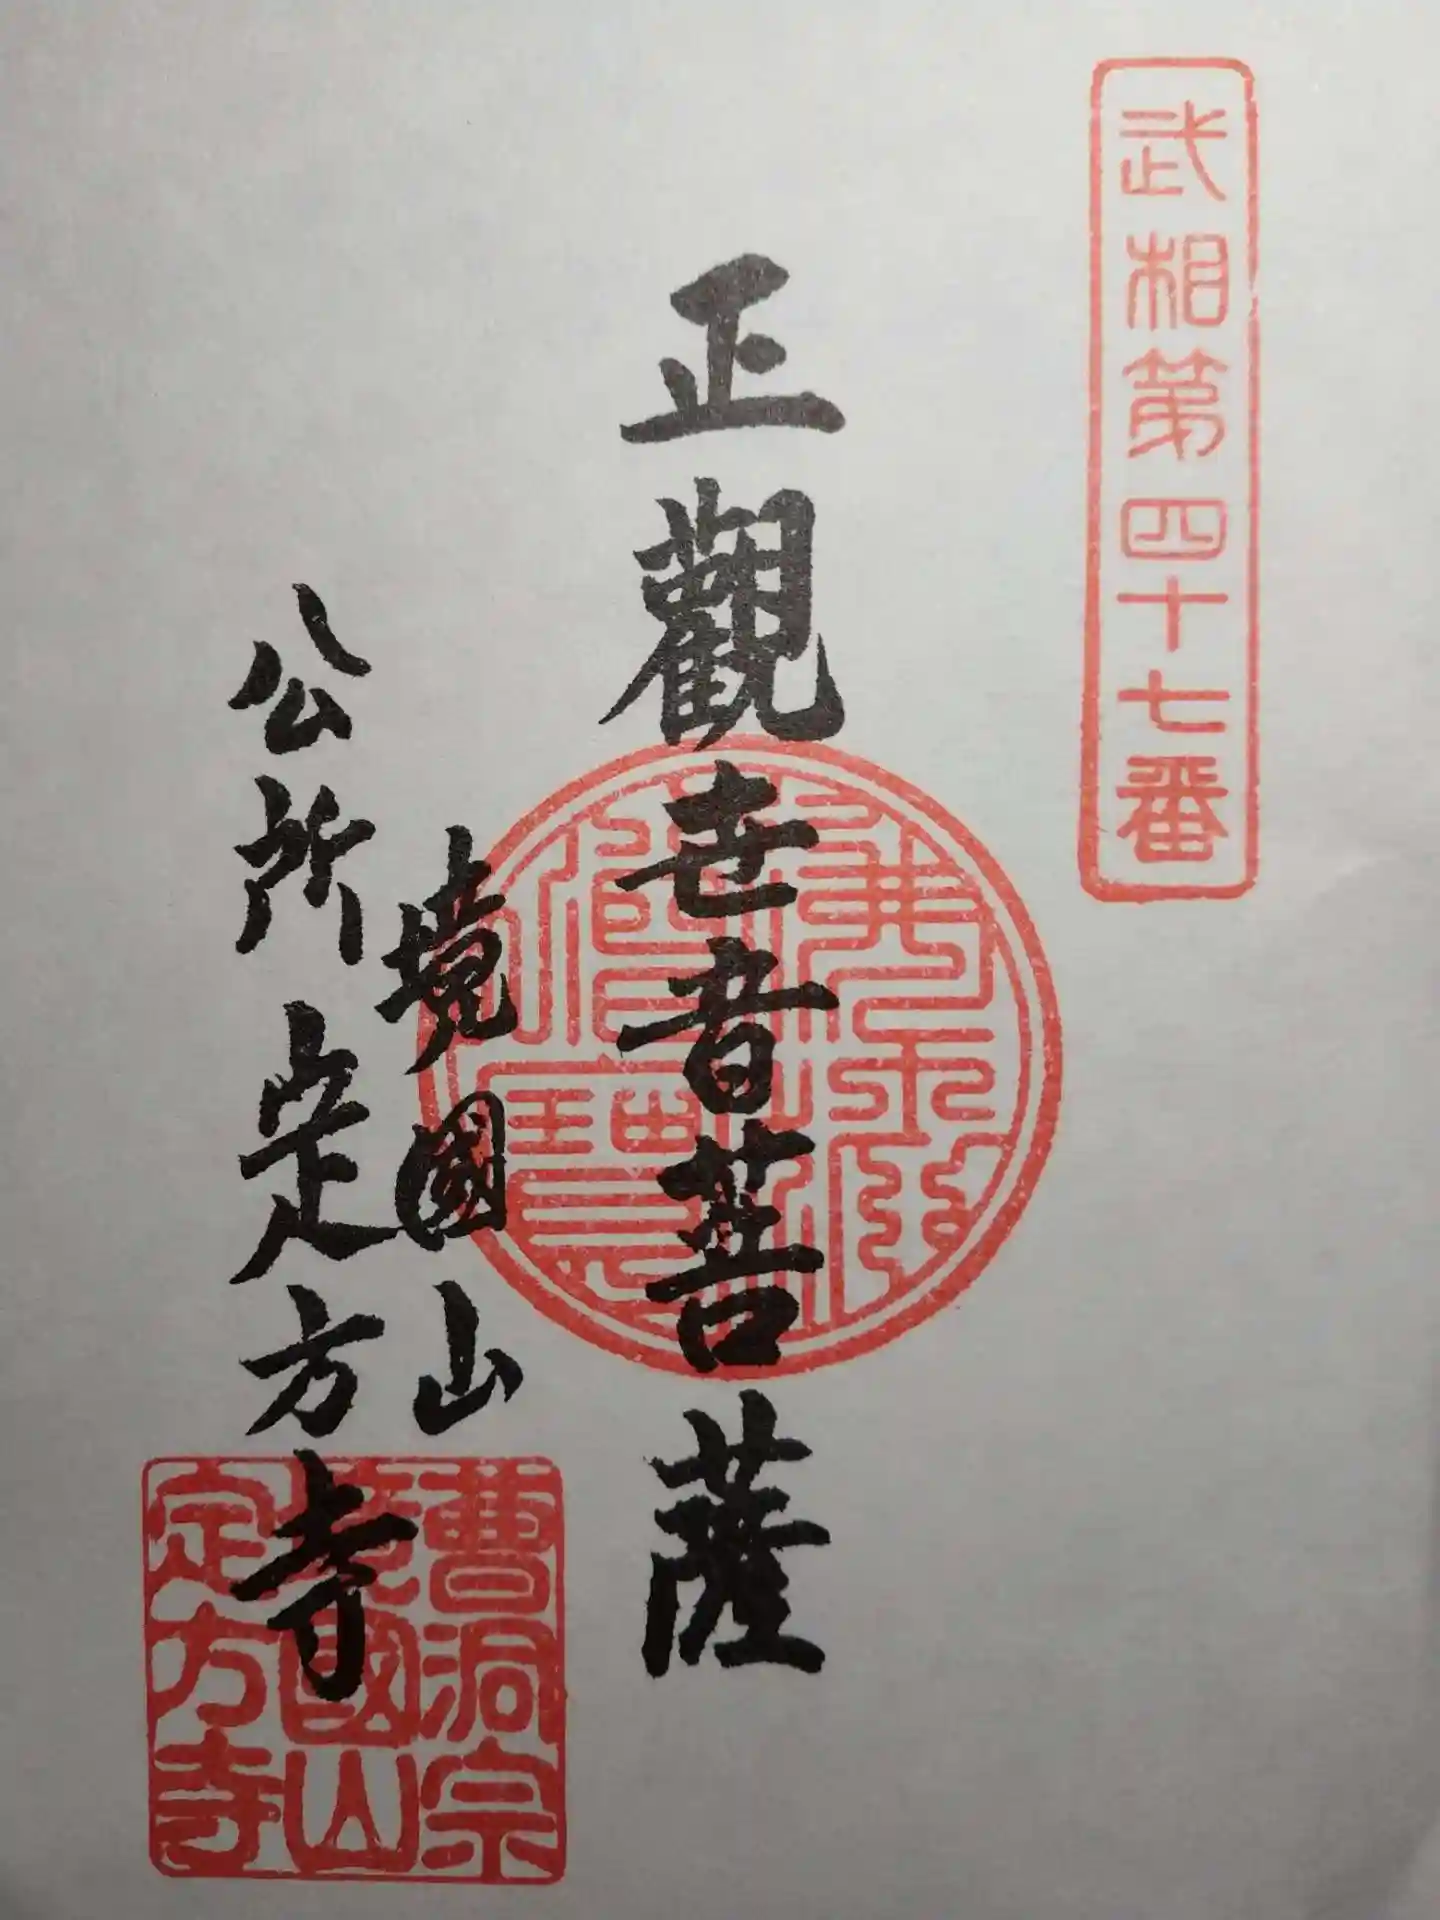 武相第四十七番
正觀世音菩薩
境國山
公所 定方寺
曹洞宗
境國山
定方寺